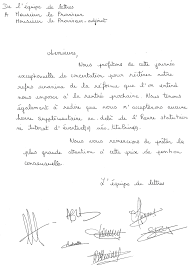 De l'équipe de lettres
A Monsieur le Proviseur
Monsieur le Proviseur-adjoint
Nous profitons de cette journée
exceptionnelle de concertation pour réitérer notre
refus unanime de la réforme que l'on entend
nous imposer à la rentrée prochaine. Nous tenons
également à redire que nous n'accepterons aucune
heure supplémentaire au-delà de l'heure statutaire
Nous vous remercions de prêter la
plus grande attention à cette prise de position
consensuelle.
L'équipe de lettres